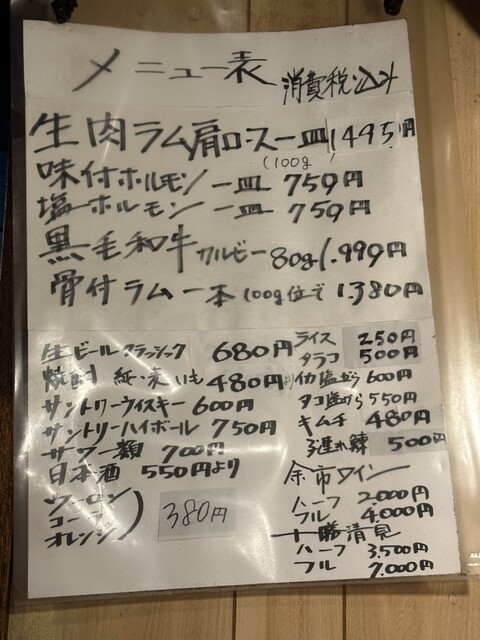 メニュー表
消費税込み
生肉ラム肩ロース一皿 1495円
(100g)
味付ホルモン一皿 759円
塩ホルモン一皿 759円
黒毛和牛カルビー80g 1.999円
骨付ラム一本100g位で 1.380円
生ビールクラッシック 680円
焼酎 紙・麦 いも 480円
サントリーウイスキー 600円
サントリーハイボール 750円
サワー類 700円
日本酒 550円より
ウーロン
コーラ
オレンジ
380円
ライス 250円
タラコ 500円
イカ塩から 600円
タコ塩から 550円
キムチ 480円
500円
余市ワイン
ハーフ 2,000円
フル 4,000円
十勝清見
ハーフ 3,500円
フル 7,000円